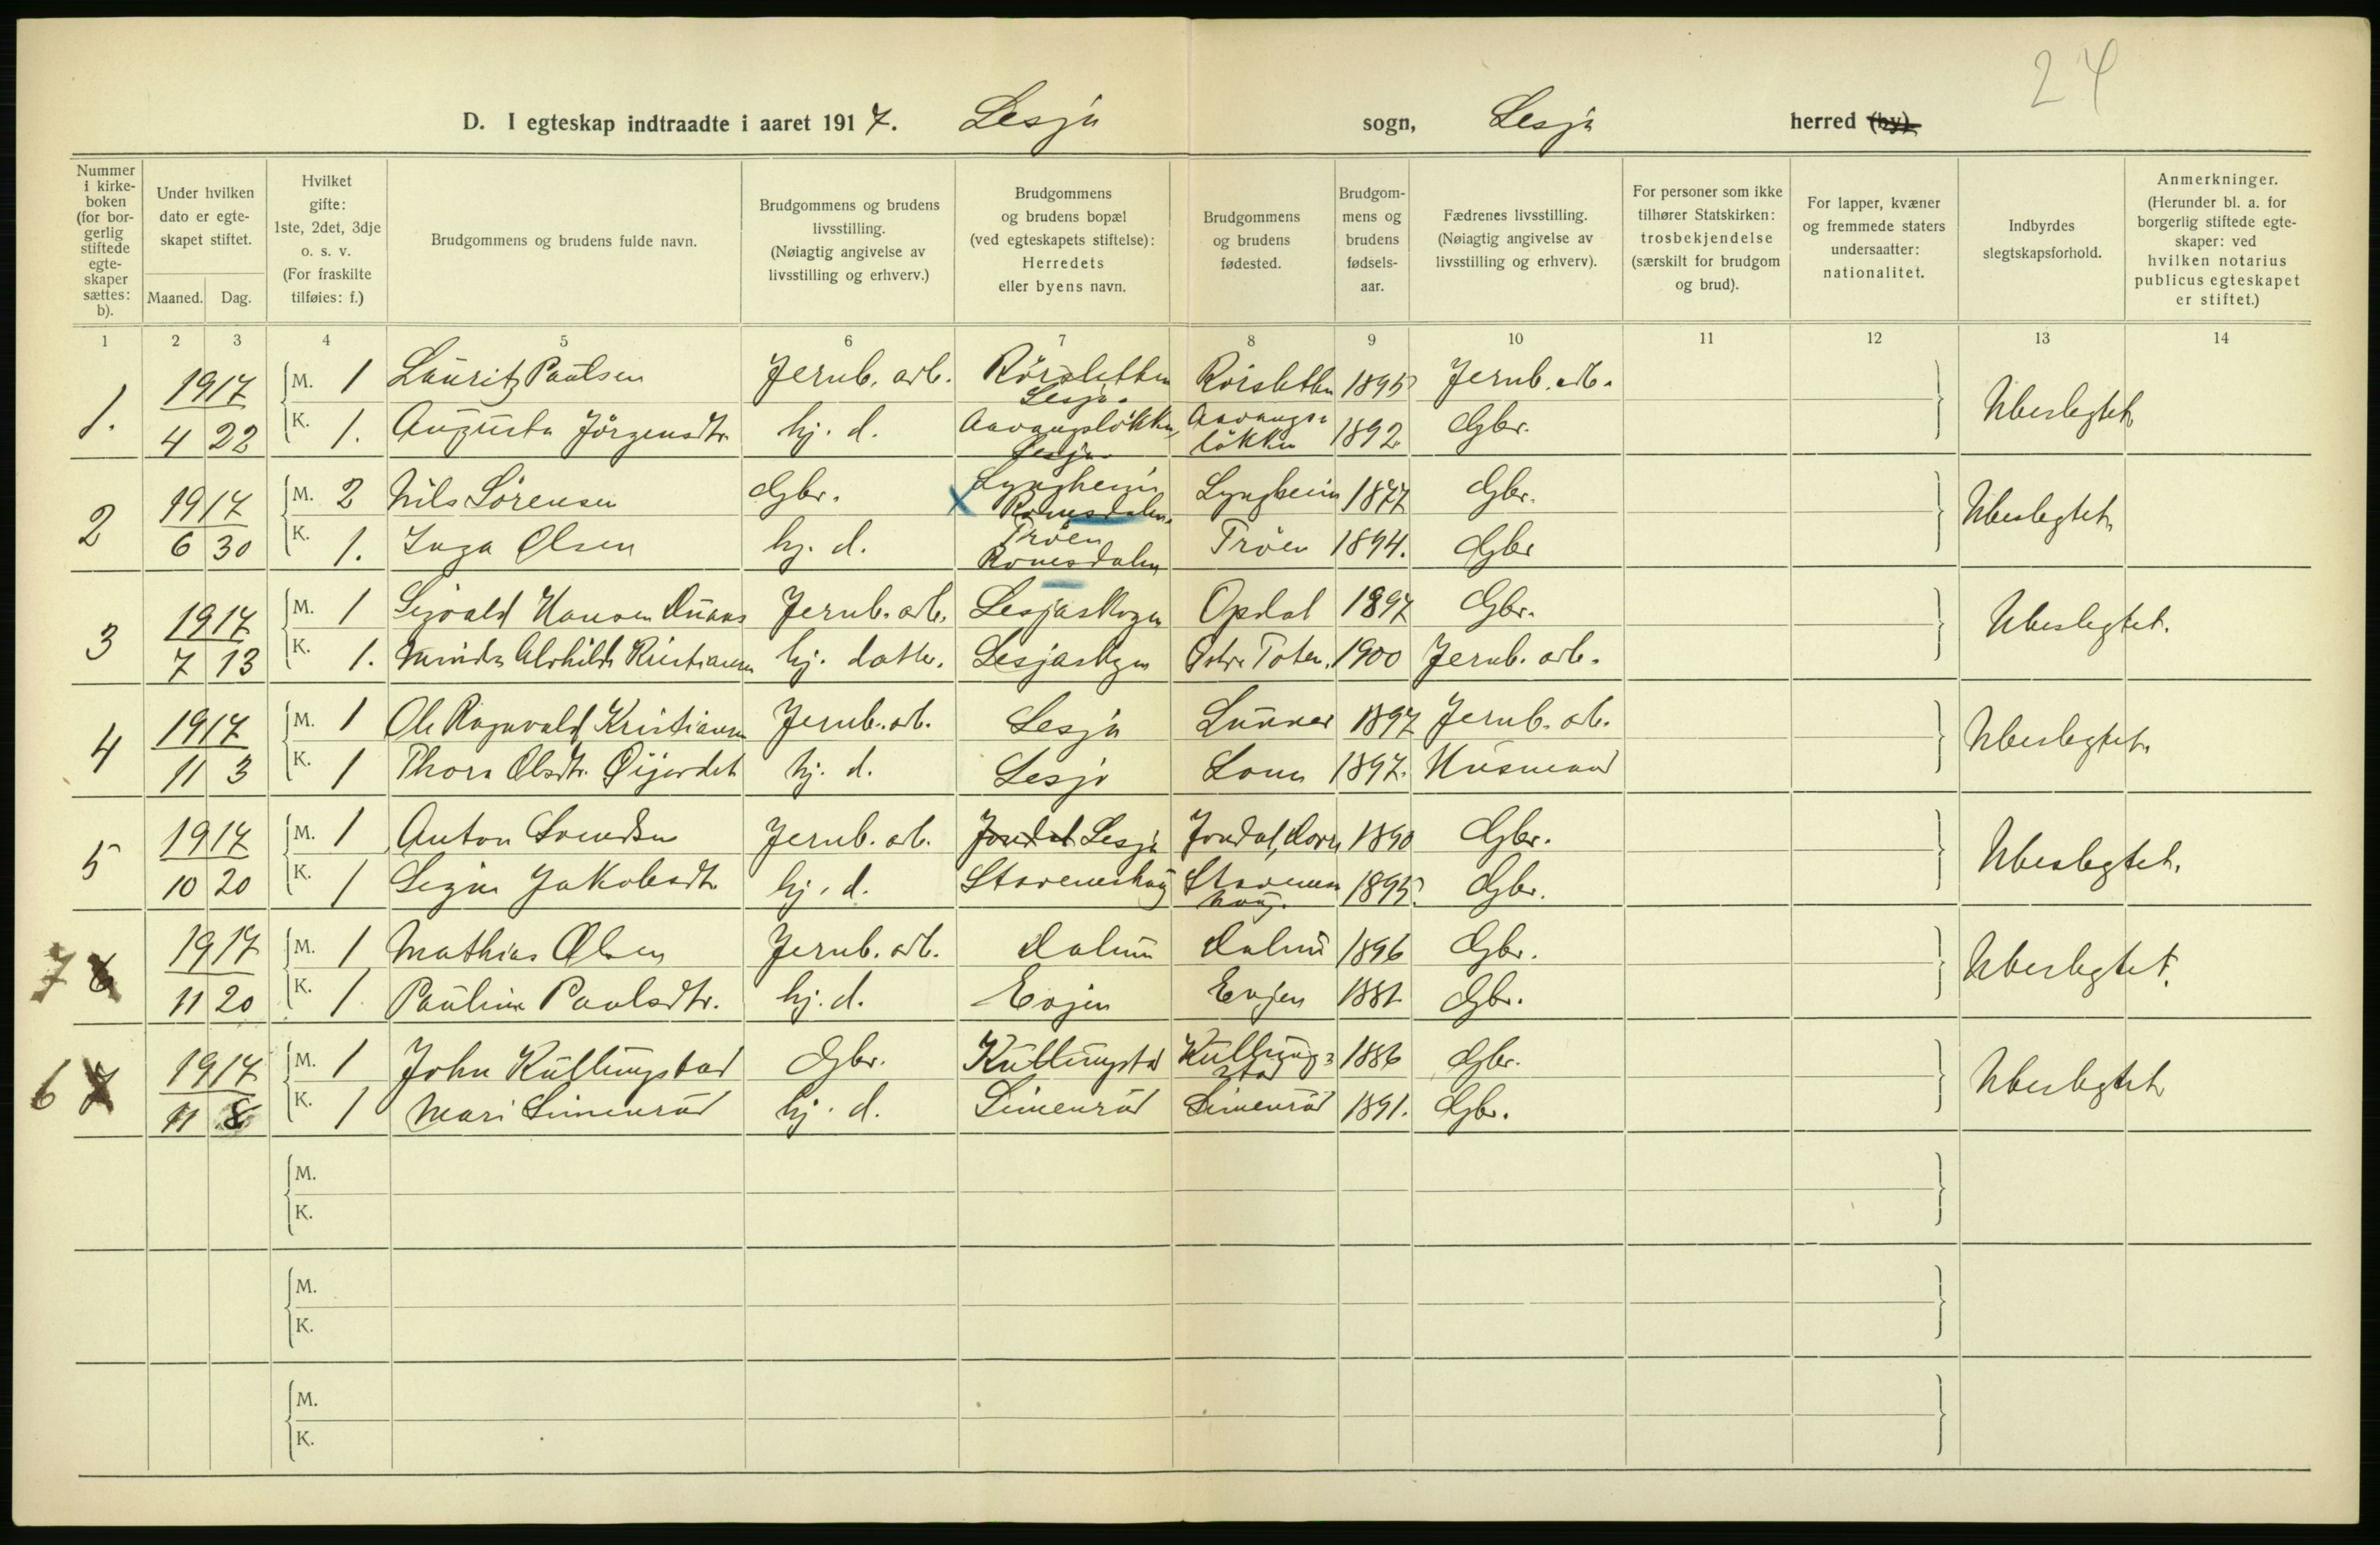 24
D. I egteskap indtraadte i aaret 1917. Lesja sogn, Lesja herred (by).
Nummer i kirke-boken (for bor-gerlig stiftede egte-skaper sættes: b).
Under hvilken dato er egte-skapet stiftet.
Maaned. Dag.
Hvilket gifte: 1ste, 2det, 3dje o. s. v. (For fraskilte tilføies: f.)
Brudgommens og brudens fulde navn.
Brudgommens og brudens livsstilling. (Nøiagtig angivelse av livsstilling og erhverv.)
Brudgommens og brudens bopæl (ved egteskapets stiftelse): Herredets eller byens navn.
Brudgommens og brudens fødested.
Brudgom-mens og brudens fødsels-aar.
Fædrenes livsstilling. (Nøiagtig angivelse av livsstilling og erhverv).
For personer som ikke tilhører Statskirken: trosbekjendelse (særskilt for brudgom og brud).
For lapper, kvæner og fremmede staters undersaatter: nationalitet.
Indbyrdes slegtskapsforhold.
Anmerkninger. (Herunder bl. a. for borgerlig stiftede egte-skaper: ved hvilken notarius publicus egteskapet er stiftet.)
1 2 3 4 5 6 7 8 9 10 11 12 13 14
1. 1917 M. 1 Lauritz Paulsen Jernb. arb. Rörsletten Lesja. Rörsletten 1895 Jernb. arb. Ubeslegtet
4 22 K. 1. Augusta Jörgensdtr. hj. d. Aavangsløkken, Lesja Aavangs=løkken 1892 Gbr.
2 1917 M. 2 Nils Sörensen Gbr. Lyngheim Romsdalen. Lyngheim 1877 Gbr. Ubeslegtet.
6 30 K. 1. Inga Olsen hj. d. Trøen Romsdalen Trøen 1894. Gbr
3 1917 M. 1 Sigvald Hansen Jernb. arb. Lesjaskogen Opdal 1897 Gbr. Ubeslegtet.
7 13 K. 1. Alvhilde Kristiansen hj. datter. Lesjaskogen Østre Toten. 1900 Jernb. arb.
4 1917 M. 1 Ole Ragnvald Kristiansen Jernb. arb. Lesja Lunner 1897 Jernb. arb. Ubeslegtet.
11 3 K. 1 Thora Olsdtr. Øijordet hj. d. Lesja Lom 1897. Husmand
5 1917 M. 1 Anton Svendsen Jernb. arb. Jondal Lesja Jondal, 1890 Gbr. Ubeslegtet.
10 20 K. 1 Signe Jakobsdtr hj. d. Stavemshaug Stavems haug. 1895. Gbr.
7 6 1917 M. 1 Mathias Olsen Jernb. arb. Dalum Dalum 1896 Gbr. Ubeslegtet.
11 20 K. 1 Pauline Paulsdtr. hj. d. Enjen Enjen 1881 Gbr.
6 7 1917 M. 1 John Kullingstad Gbr. Kullingstad Kulling=stad 1886 Gbr. Ubeslegtet
11 8 K. 1 Mari Simenrud hj. d. Simenrud Simenrud 1891. Gbr.
M.
K.
M.
K.
M.
K.